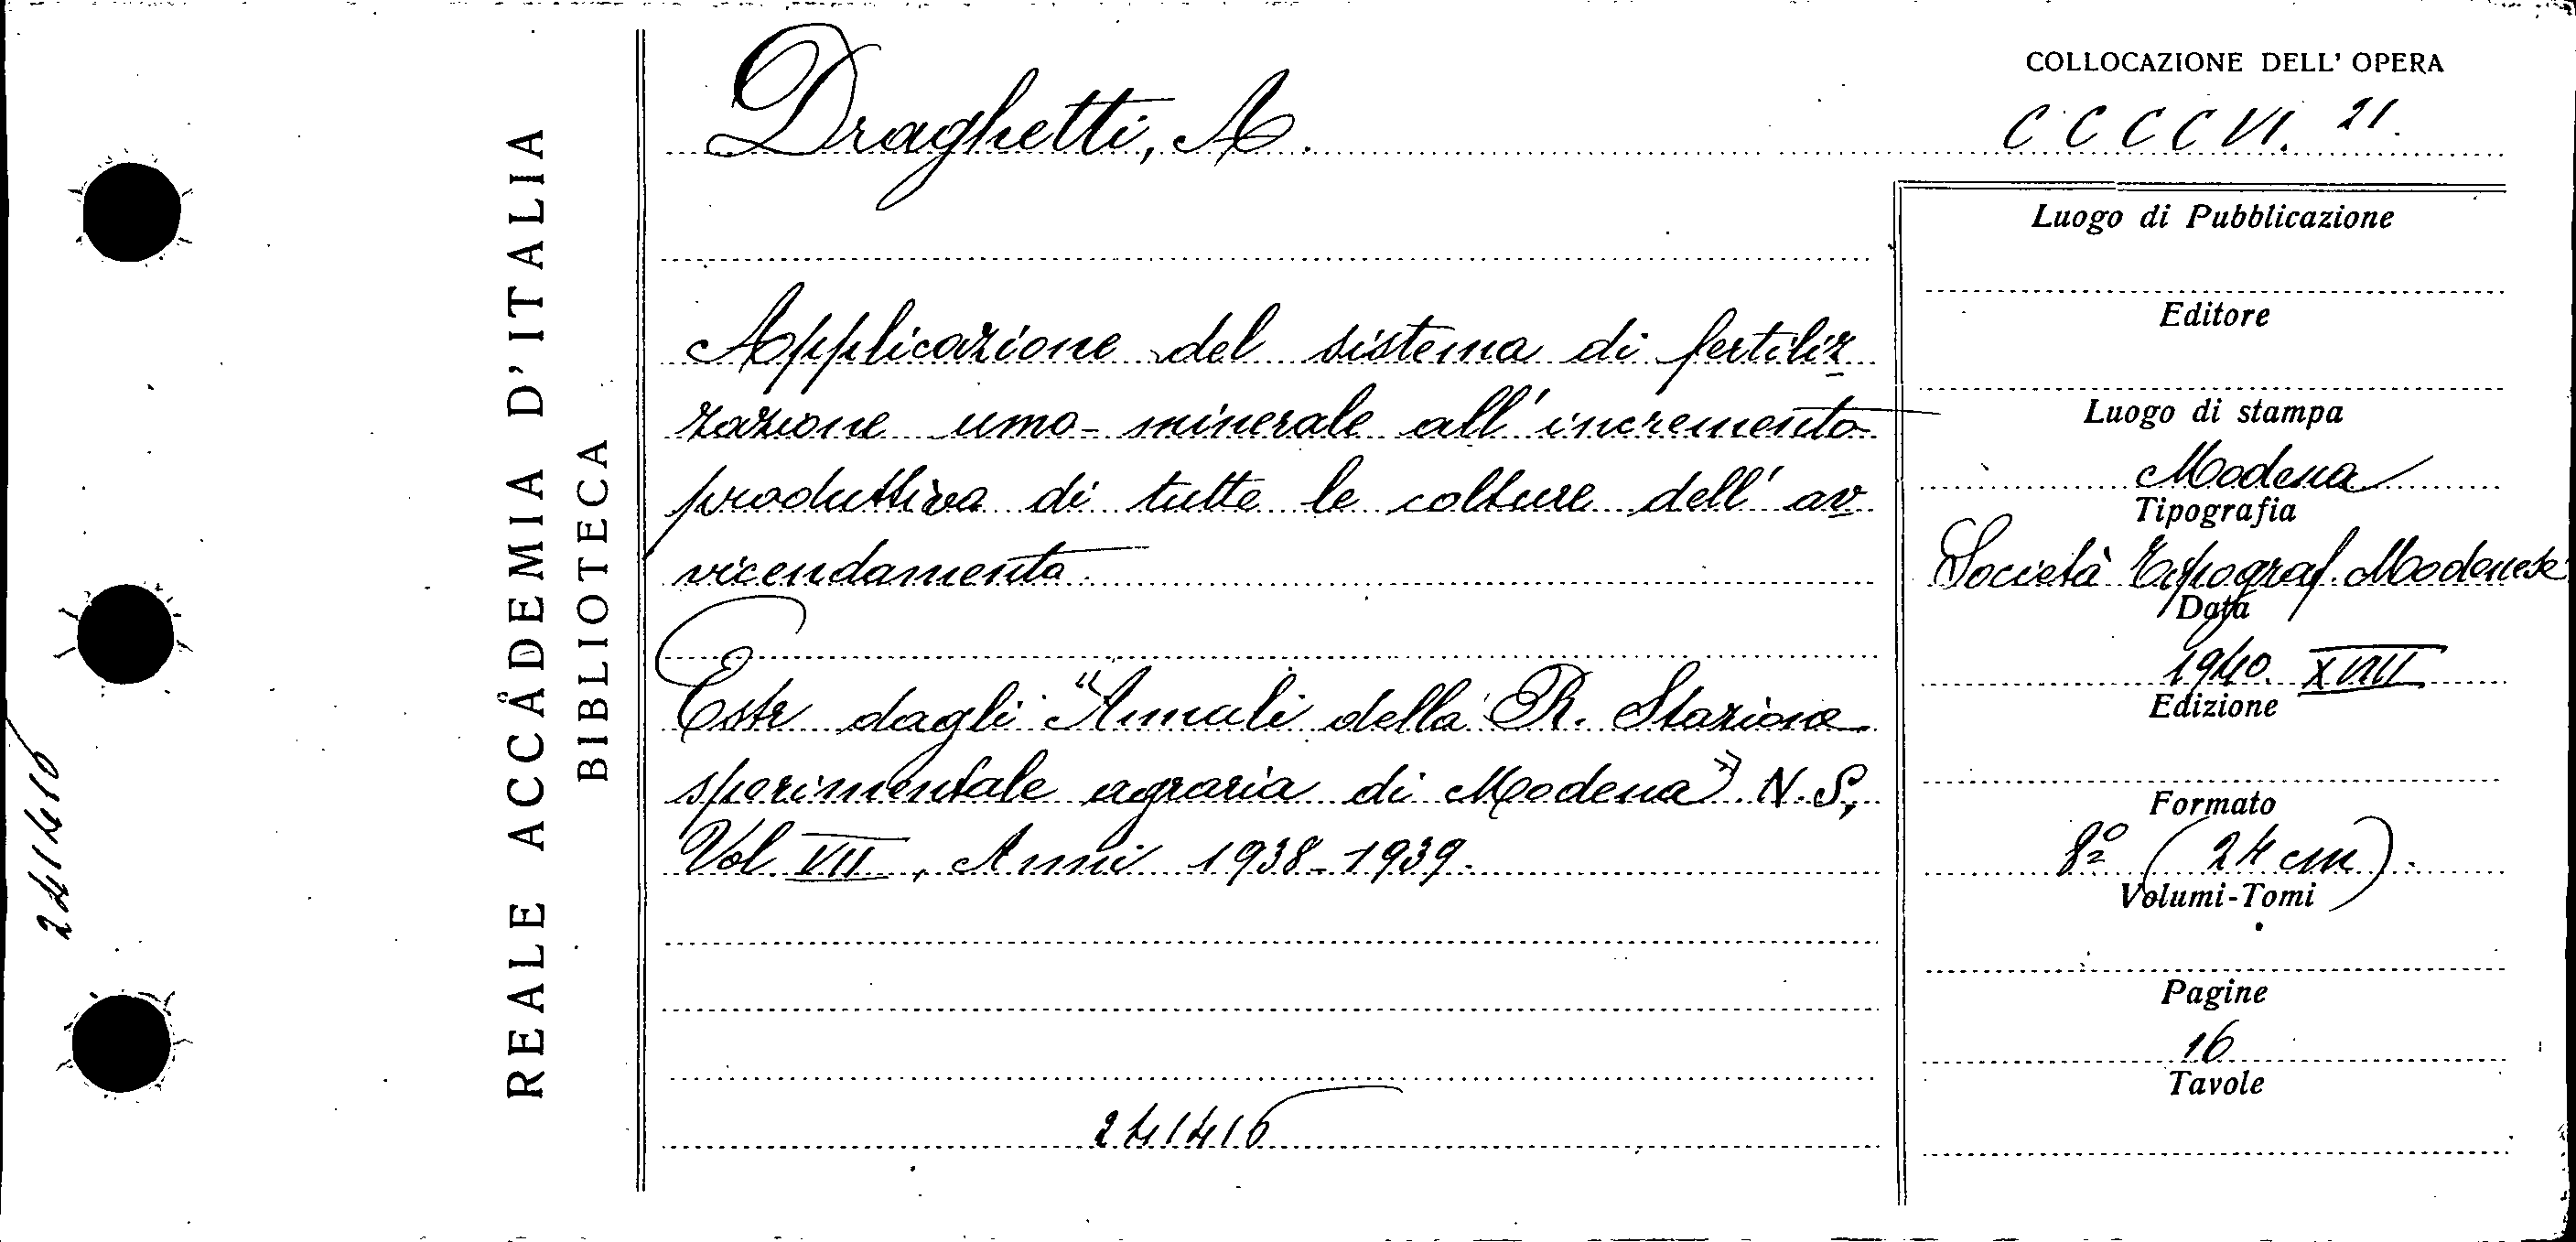 REALE ACCADEMIA D'ITALIA
BIBLIOTECA
241416
Draghetti, A.
Applicazione del sistema di fertiliz
zazione umo-minerale all'incremento
produttiva di tutte le colture dell'av
vicendamento.
Estr dagli "Annali della R. Stazione
sperimentale agraria di Modena" N.S,
Vol. VII, Anni 1938-1939.
241416
COLLOCAZIONE DELL' OPERA
CCCCVI. 21.
Luogo di Pubblicazione
Editore
Luogo di stampa
Modena
Tipografia
Società Tipograf. Modenese
Data
1940. XVIII
Edizione
Formato
8º (24 cm).
Volumi-Tomi
Pagine
16
Tavole